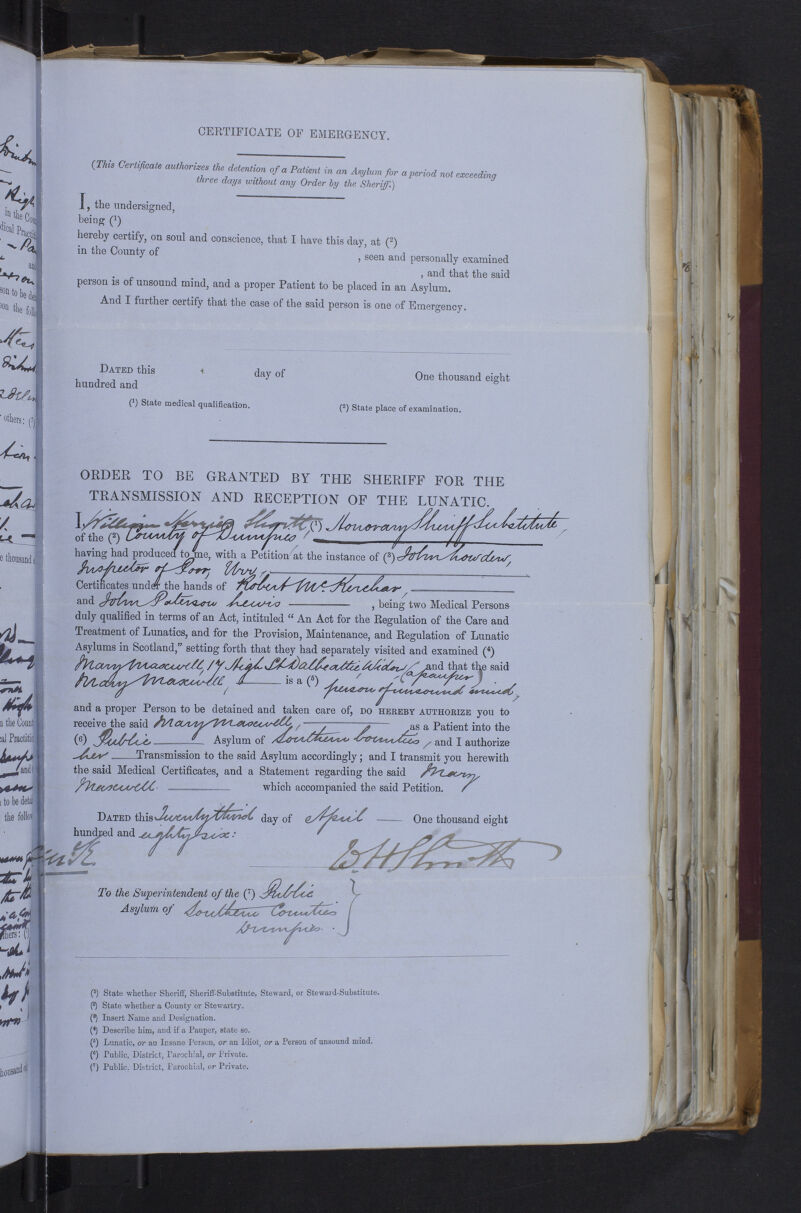 CERTIFICATE OF EMERGENCY.
(This Certificate authorizes the detention of a Patient in an Asylum for a period not exceeding
three days without any Order by the Sheriff.)
I, the undersigned,
being (¹)
hereby certify, on soul and conscience, that I have this day, at (²)
in the County of , seen and personally examined
, and that the said
person is of unsound mind, and a proper Patient to be placed in an Asylum.
And I further certify that the case of the said person is one of Emergency.
DATED this day of One thousand eight
hundred and
(¹) State medical qualification. (²) State place of examination.
ORDER TO BE GRANTED BY THE SHERIFF FOR THE
TRANSMISSION AND RECEPTION OF THE LUNATIC.
I, William (¹) Honorary Sheriff Substitute,
of the (²) County of Dumfries,
having had produced to me, with a Petition at the instance of (³) John
Inspector of Poor, Urr,
Certificates under the hands of Robert McKerchar,
and John Paterson , being two Medical Persons
duly qualified in terms of an Act, intituled "An Act for the Regulation of the Care and
Treatment of Lunatics, and for the Provision, Maintenance, and Regulation of Lunatic
Asylums in Scotland," setting forth that they had separately visited and examined (⁴)
Mary Maxwell, 17 High St Dalbeattie, Widow, (a pauper) and that the said
Mary Maxwell, is a (⁵) person of unsound mind,
and a proper Person to be detained and taken care of, DO HEREBY AUTHORIZE you to
receive the said Mary Maxwell, as a Patient into the
(⁶) Public Asylum of Southern Counties, and I authorize
her Transmission to the said Asylum accordingly; and I transmit you herewith
the said Medical Certificates, and a Statement regarding the said Mary
Maxwell which accompanied the said Petition.
DATED this Twenty third day of April One thousand eight
hundred and eighty six:
To the Superintendent of the (⁷) Public
Asylum of Southern Counties
Dumfries.
(¹) State whether Sheriff, Sheriff-Substitute, Steward, or Steward-Substitute.
(²) State whether a County or Stewartry.
(³) Insert Name and Designation.
(⁴) Describe him, and if a Pauper, state so.
(⁵) Lunatic, or an Insane Person, or an Idiot, or a Person of unsound mind.
(⁶) Public, District, Parochial, or Private.
(⁷) Public, District, Parochial, or Private.